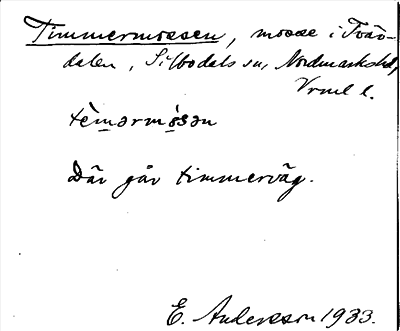 Timmermossen, mosse i Två-
dalen, Silbodals sn, Nordmarks hd,
Vrml l.
tèmərmòsən
Där går timmerväg.
E. Andersson 1933.